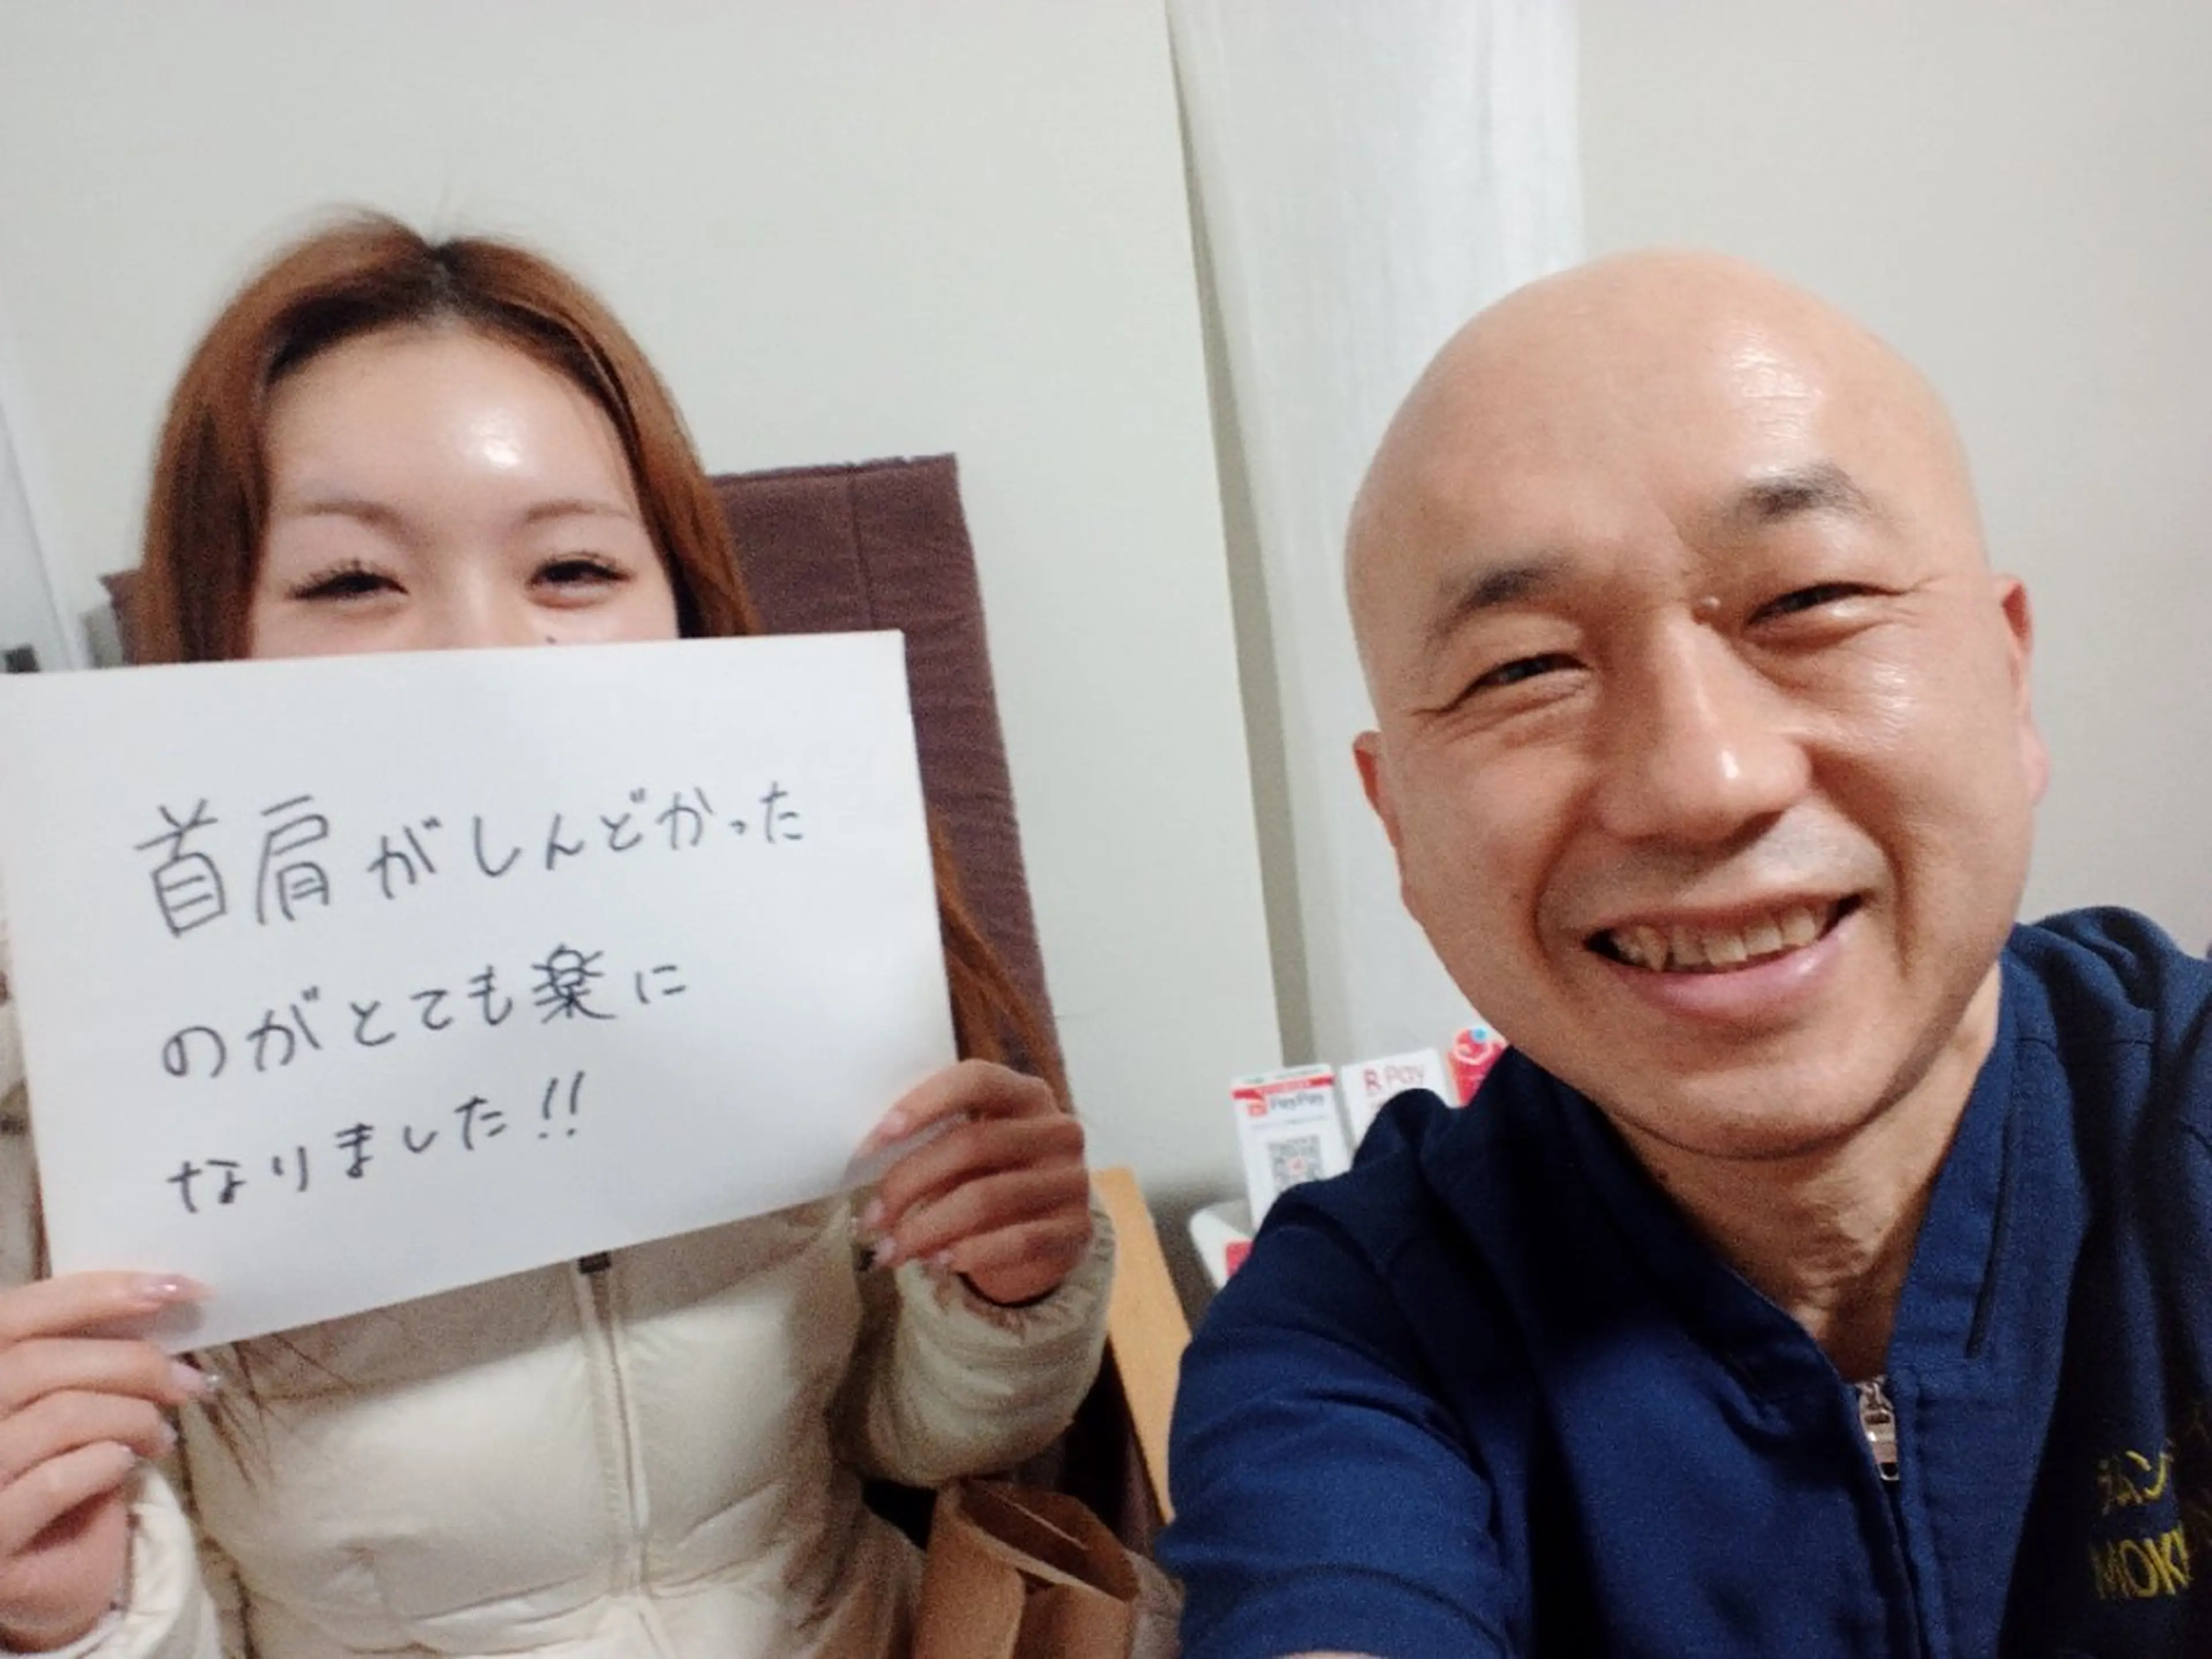 首肩がしんどかった
のがとても楽に
なりました!!
PayPay
R Pay
MOK